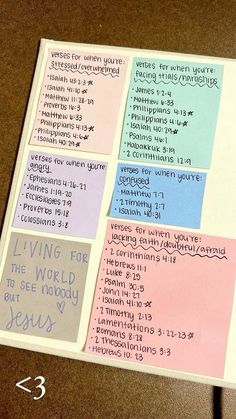 verses for when you're:
stressed/overwhelmed
• Isaiah 43:2-3☆
• Isaiah 41:10
• Matthew 11:28-29
• Proverbs 16:3
• Matthew 6:33
• Philippians 4:13☆
• Philippians 4:6☆
• Isaiah 40:29☆
verses for when you're:
facing trials/hardships
• James 1:2-4
• Matthew 6:33
• Philippians 4:13☆
• Philippians 4:6☆
• Isaiah 40:29☆
• Psalms 46:1
• Habakkuk 3:19
• 2 Corinthians 12:9
verses for when you're:
angry
• Ephesians 4:26-27
• James 1:19-20
• Ecclesiastes 7:9
• Proverbs 14:18
• Colossians 3:8
verses for when you're:
confused
• Matthew 7:7
• 2 Timothy 2:7
• Isaiah 40:31
verses for when you're:
lacking faith/doubtful/afraid
• 2 Corinthians 4:18
• Hebrews 11:1
• Luke 8:25
• Psalm 30:5
• John 14:27
• Isaiah 41:10☆
• 2 Timothy 2:13
• Lamentations 3:22-23☆
• Romans 8:28
• 2 Thessalonians 3:3
• Hebrews 10:23
LIVING FOR
THE WORLD
TO SEE NOBODY
BUT ♡
Jesus
<3